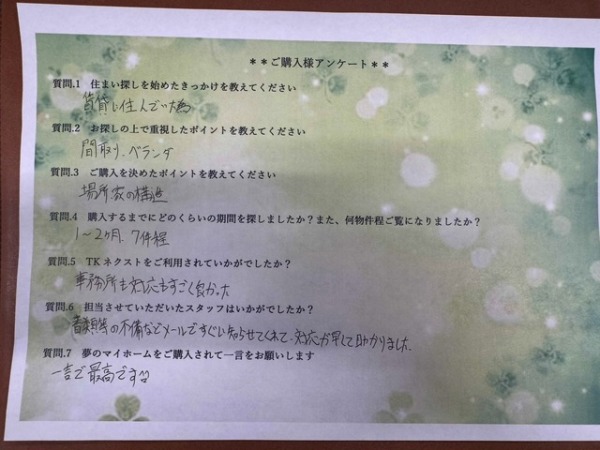 **ご購入様アンケート**
質問.1 住まい探しを始めたきっかけを教えてください
賃貸に住んでいた為
質問.2 お探しの上で重視したポイントを教えてください
間取り、ベランダ
質問.3 ご購入を決めたポイントを教えてください
場所 家の構造
質問.4 購入するまでにどのくらいの期間を探しましたか?また、何物件程ご覧になりましたか?
1〜2ヶ月、7件程
質問.5 TKネクストをご利用されていかがでしたか?
事務所も対応もすごく良かった
質問.6 担当させていただいたスタッフはいかがでしたか?
書類等の不備などメールですぐに知らせてくれて、対応が早くて助かりました
質問.7 夢のマイホームをご購入されて一言をお願いします
一言で最高です